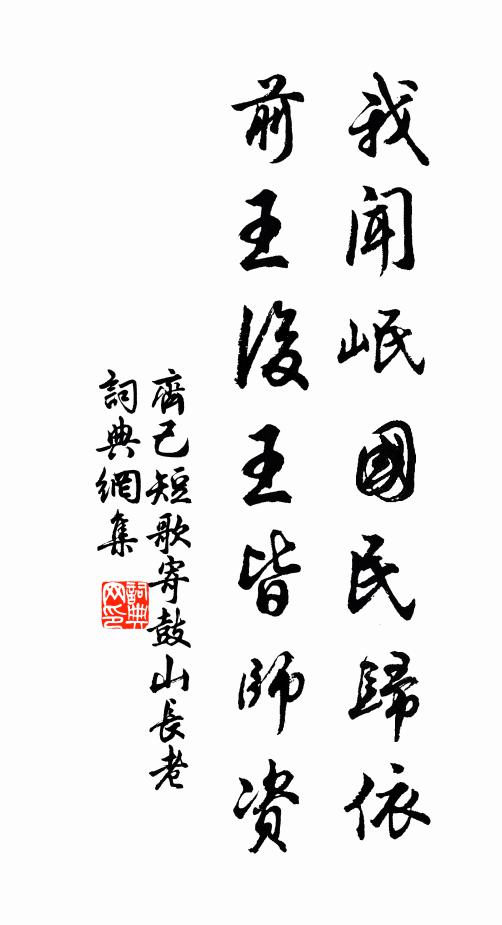 我聞岷國民歸依
前王後王皆師資
齊己短歌寄鼓山長老
詞典網集
詞典网印